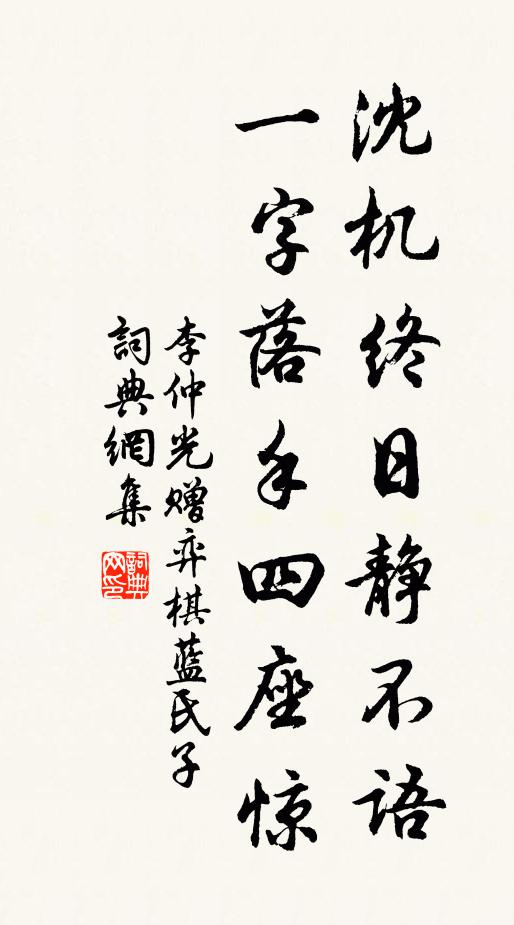 沈机终日静不语
一字落手四座惊
李仲光赠弈棋蓝氏子
詞典網集
詞典网印